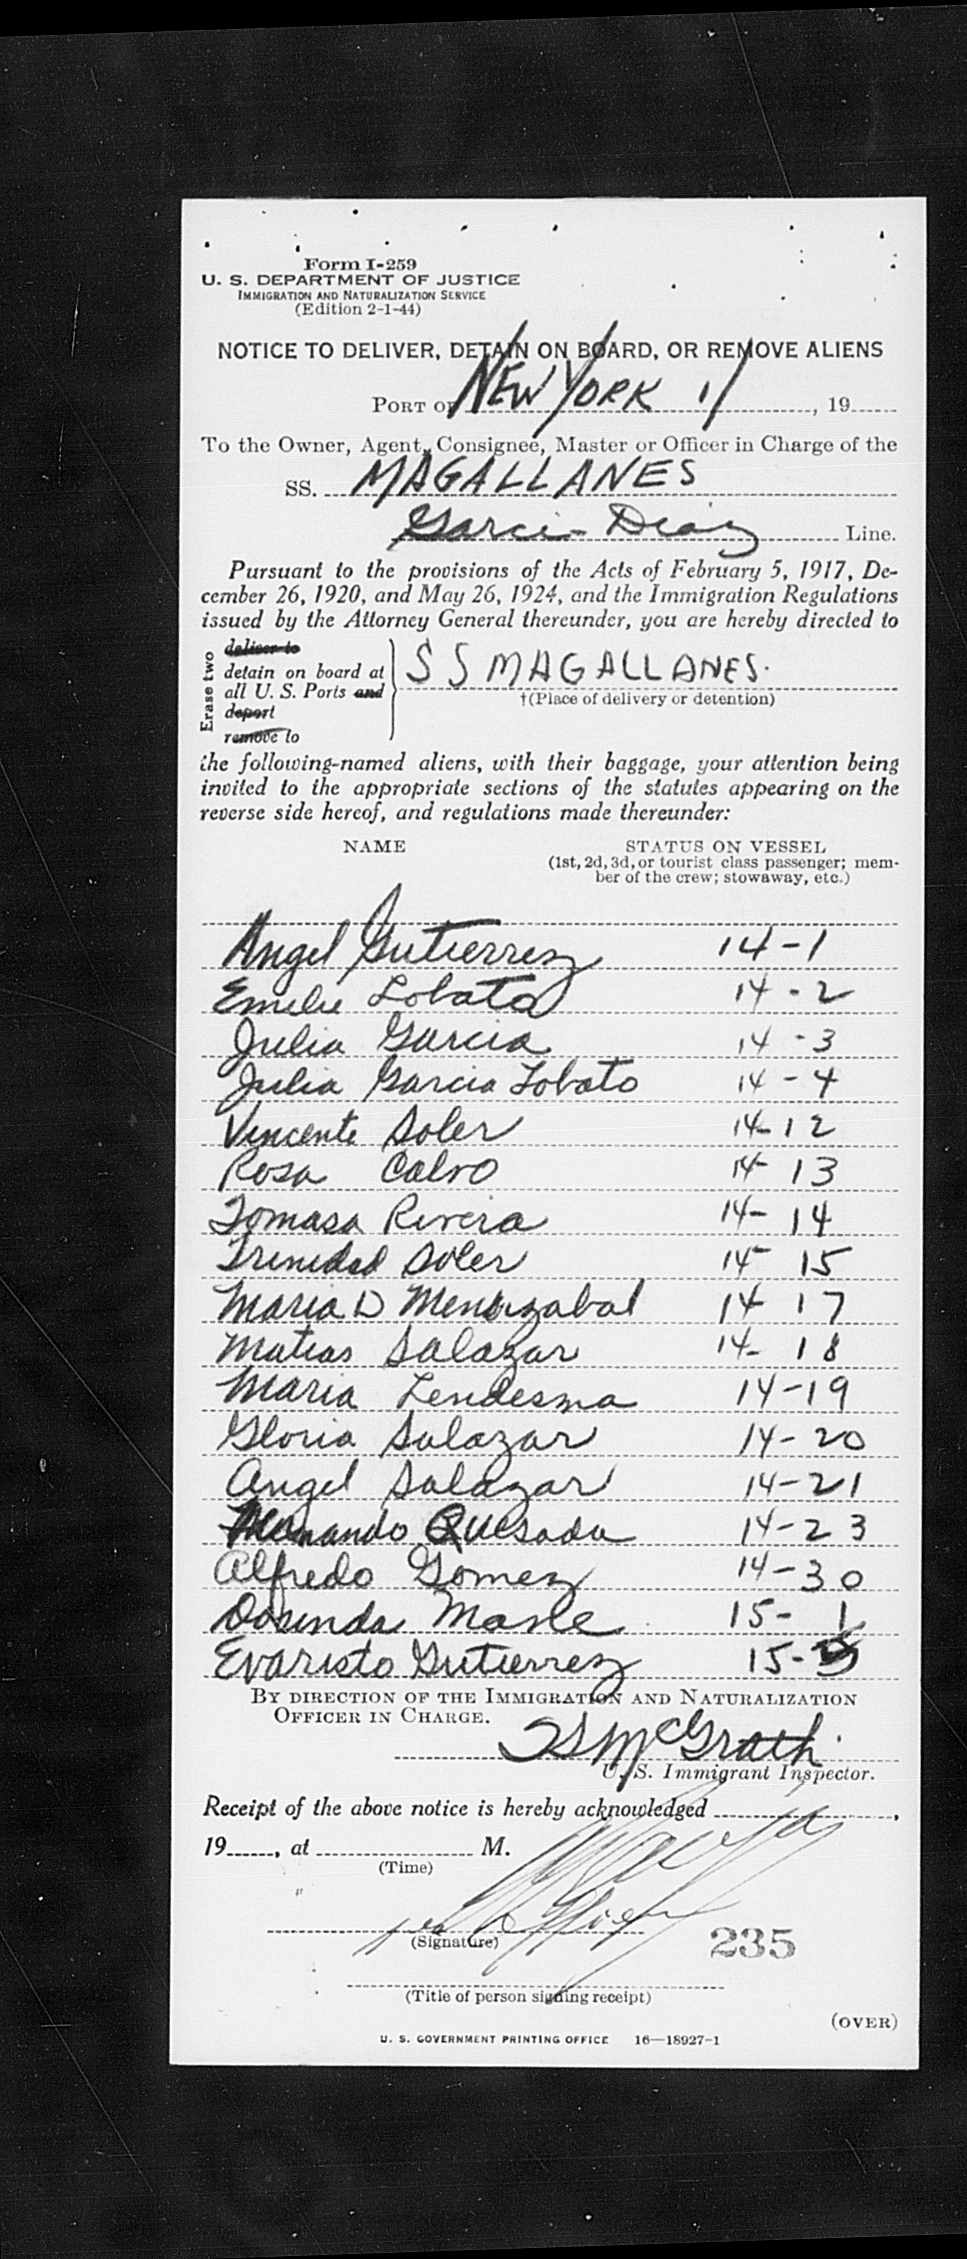 Form I-259
U. S. DEPARTMENT OF JUSTICE
IMMIGRATION AND NATURALIZATION SERVICE
(Edition 2-1-44)
NOTICE TO DELIVER, DETAIN ON BOARD, OR REMOVE ALIENS
PORT OF NEW YORK 1/ , 19
To the Owner, Agent, Consignee, Master or Officer in Charge of the
SS. MAGALLANES
Garci- Diaz Line.
Pursuant to the provisions of the Acts of February 5, 1917, De-
cember 26, 1920, and May 26, 1924, and the Immigration Regulations
issued by the Attorney General thereunder, you are hereby directed to
Erase two
deliver to
detain on board at
all U. S. Ports and
deport
remove to
S S MAGALLANES.
†(Place of delivery or detention)
the following-named aliens, with their baggage, your attention being
invited to the appropriate sections of the statutes appearing on the
reverse side hereof, and regulations made thereunder:
NAME STATUS ON VESSEL
(1st, 2d, 3d, or tourist class passenger; mem-
ber of the crew; stowaway, etc.)
Angel Gutierrez 14-1
Emilie Lobato 14-2
Julia Garcia 14-3
Julia Garcia Lobato 14-4
Vincente Soler 14-12
Rosa Calvo 14-13
Tomasa Rivera 14-14
Trinidad Soler 14-15
Maria D Mendizabal 14 17
Matias Salazar 14-18
Maria Lendesma 14-19
Gloria Salazar 14-20
Angel Salazar 14-21
Quesada 14-23
Alfredo Gomez 14-30
Dosinda 15-1
Evaristo Gutierrez 15-
BY DIRECTION OF THE IMMIGRATION AND NATURALIZATION
OFFICER IN CHARGE.
McGrath
U. S. Immigrant Inspector.
Receipt of the above notice is hereby acknowledged ,
19 , at M.
(Time)
(Signature)
235
(Title of person signing receipt)
(OVER)
U. S. GOVERNMENT PRINTING OFFICE 16—18927-1